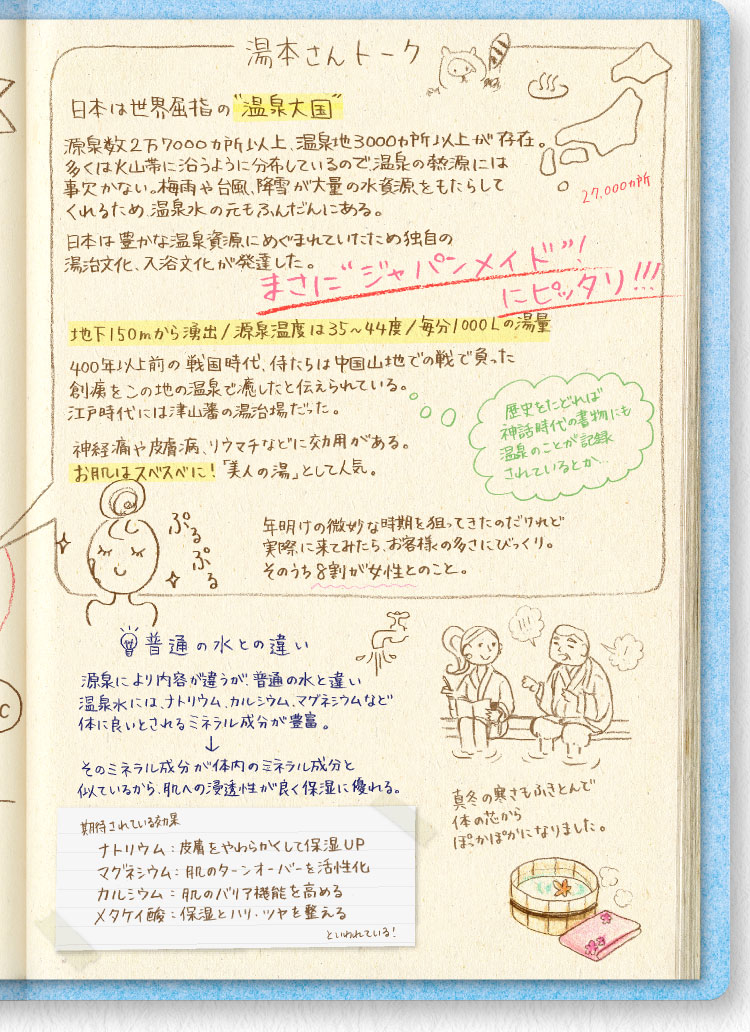 湯本さんトーク
日本は世界屈指の"温泉大国"
源泉数2万7000ヵ所以上、温泉地3000ヵ所以上が存在。
多くは火山帯に沿うように分布しているので、温泉の熱源には
事欠かない。梅雨や台風、降雪が大量の水資源をもたらして
くれるため、温泉水の元もふんだんにある。
27,000ヵ所
日本は豊かな温泉資源にめぐまれていたため独自の
湯治文化、入浴文化が発達した。
まさに"ジャパンメイド"!
にピッタリ!!!
地下150mから湧出/源泉温度は35~44度/毎分1000Lの湯量
400年以上前の戦国時代、侍たちは中国山地での戦で負った
創痍をこの地の温泉で癒したと伝えられている。
江戸時代には津山藩の湯治場だった。
歴史をたどれば
神話時代の書物にも
温泉のことが記録
されているとか…
神経痛や皮膚病、リウマチなどに効用がある。
お肌はスベスベに!「美人の湯」として人気。
ぷる
ぷる
年明けの微妙な時期を狙ってきたのだけれど
実際に来てみたら、お客様の多さにびっくり。
そのうち8割が女性とのこと。
普通の水との違い
源泉により内容が違うが、普通の水と違い
温泉水には、ナトリウム、カルシウム、マグネシウムなど
体に良いとされるミネラル成分が豊富。
↓
そのミネラル成分が体内のミネラル成分と
似ているから、肌への浸透性が良く保湿に優れる。
期待されている効果
ナトリウム:皮膚をやわらかくして保湿UP
マグネシウム:肌のターンオーバーを活性化
カルシウム:肌のバリア機能を高める
メタケイ酸:保湿とハリ・ツヤを整える
といわれている!
真冬の寒さもふきとんで
体の芯から
ぽっかぽかになりました。
C